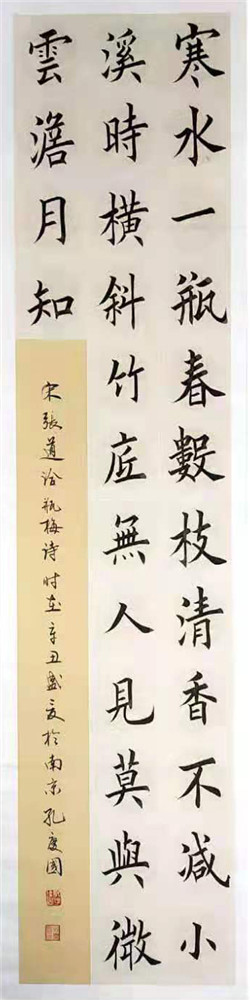 寒水一瓶春數枝清香不減小
溪時橫斜竹底無人見莫與微
雲澹月知
宋張道洽瓶梅诗时在辛丑盛夏於南京孔